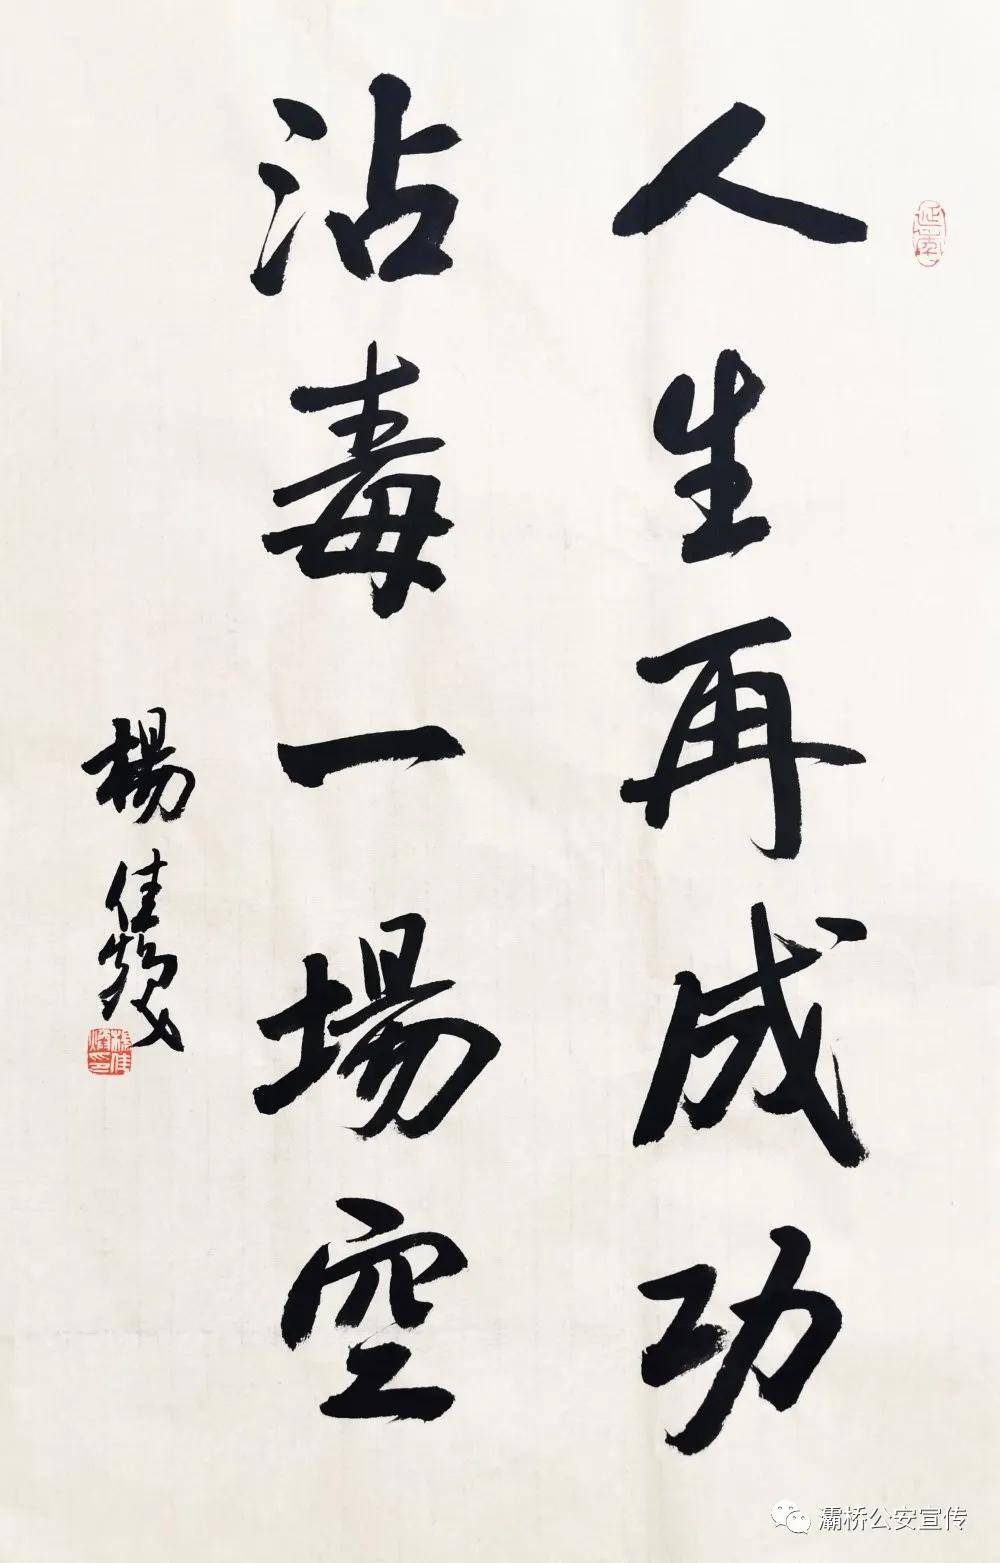 人生再成功
沾毒一場空
楊佳燦
灞桥公安宣传